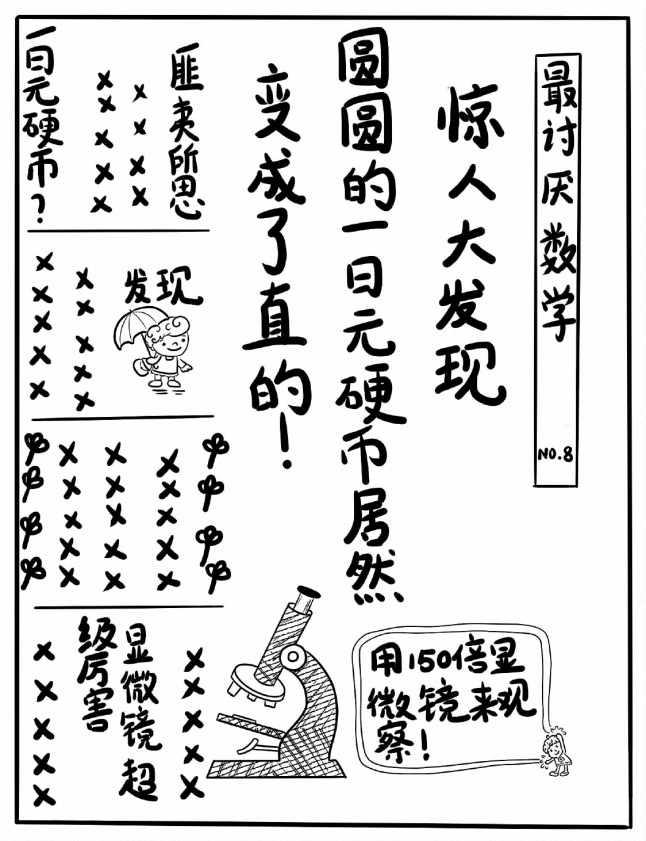 最讨厌数学
NO.8
惊人大发现
圆圆的一日元硬币居然
变成了直的！
匪夷所思
一日元硬币？
发现
显微镜超
级厉害
用150倍显
微镜来观
察！